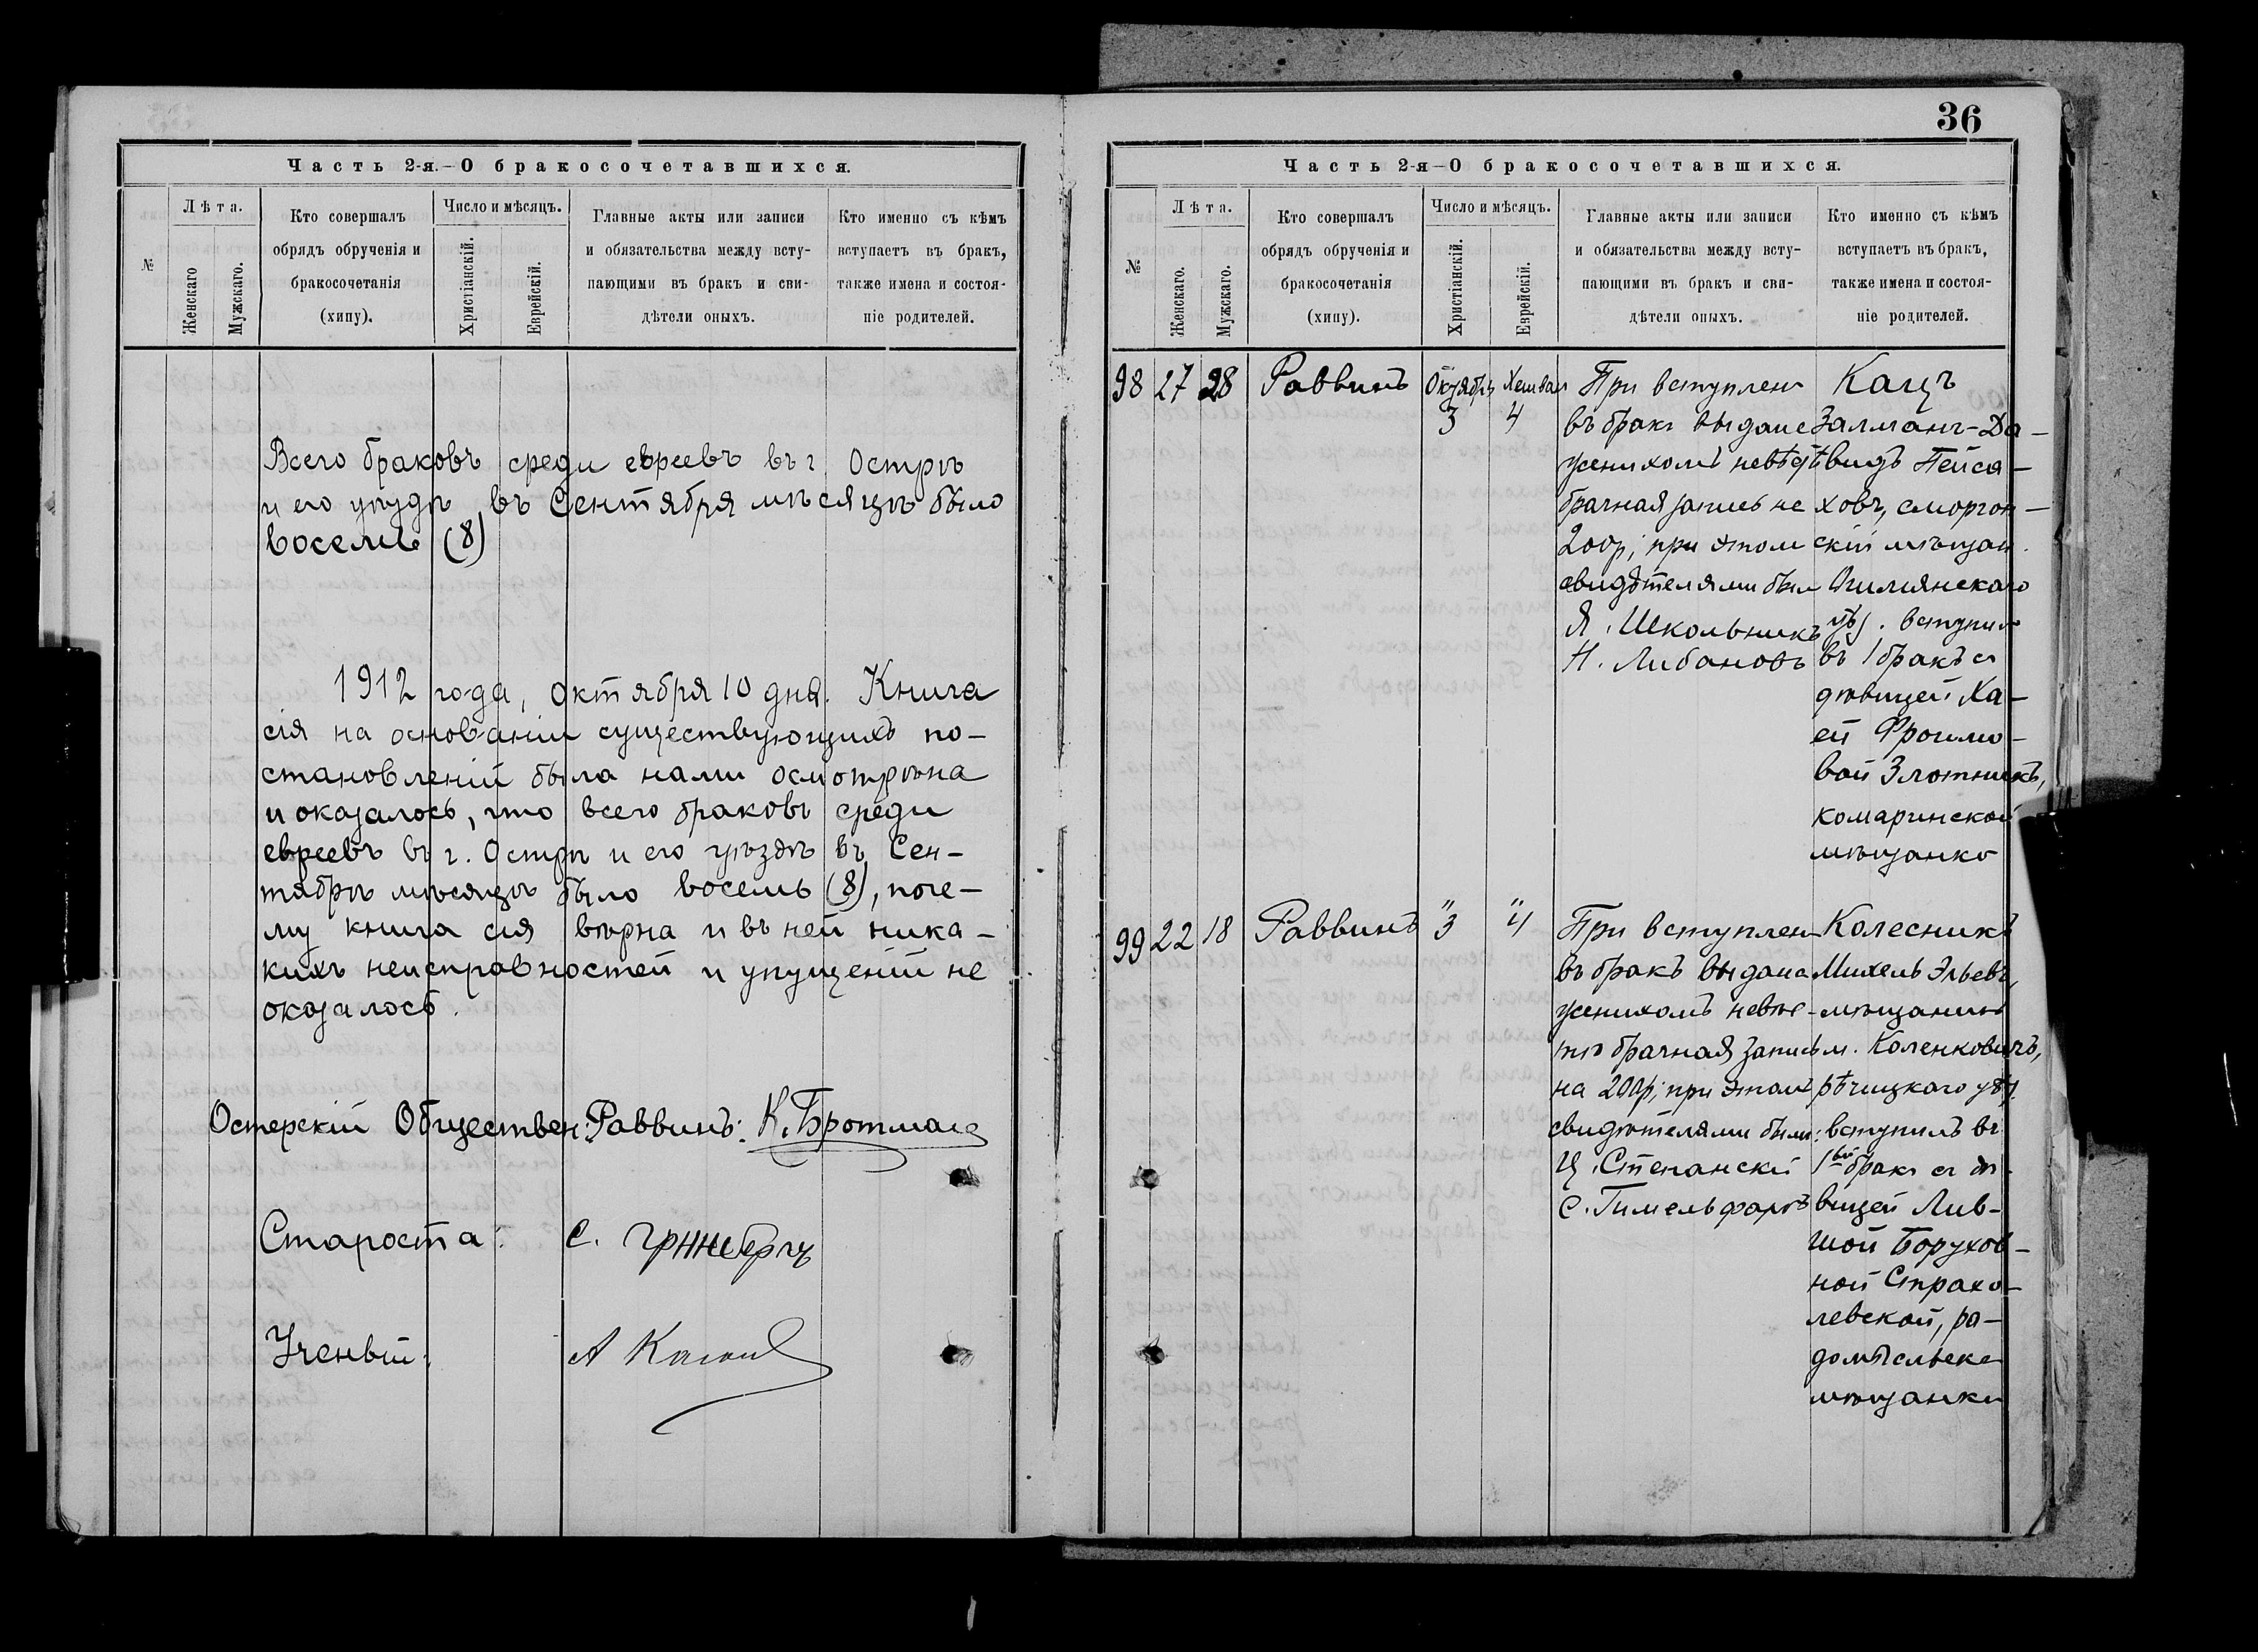 Часть 2-я.–О бракосочетавшихся.
№
Лѣта.
Женскаго
Мужскаго.
Кто совершалъ
обрядъ обрученія и
бракосочетанія
(хипу).
Число и мѣсяцъ.
Христіанскій.
Еврейскій.
Главные акты или записи
и обязательства между всту-
пающими въ бракъ и сви-
дѣтели оныхъ.
Кто именно съ кѣмъ
вступаетъ въ бракъ,
также имена и состоя-
ніе родителей.
Всего браковъ среди евреевъ въ г. Острѣ
и его уѣздѣ въ Сентября мѣсяцѣ было
восемь (8)
1912 года, Октября 10 дня. Книга
сія на основаніи существующихъ по-
становленій была нами осмотрѣна
и оказалось, что всего браковъ среди
евреевъ въ г. Острѣ и его уѣздѣ въ Сен-
тябрѣ мѣсяцѣ было восемь (8), поче-
му книга сія вѣрна и въ ней ника-
кихъ неисправностей и упущеній не
оказалось.
Остерскій Обществен. Раввинъ: К. Бротман
Староста: С. Гринбергъ
Ученый: А Каган
36
Часть 2-я–О бракосочетавшихся.
№
Лѣта.
Женскаго.
Мужскаго.
Кто совершалъ
обрядъ обрученія и
бракосочетанія
(хипу).
Число и мѣсяцъ.
Христіанскій.
Еврейскій.
Главные акты или записи
и обязательства между всту-
пающими въ бракъ и сви-
дѣтели оныхъ.
Кто именно съ кѣмъ
вступаетъ въ бракъ,
также имена и состоя-
ніе родителей.
98 27 28 Раввинъ Октябрь 3 Хешван 4
При вступлен
въ бракъ выдане
женихомъ невѣстѣ
брачная запись на
200р; при этом
свидѣтелями был
Я. Школьникъ
Н. Либановъ
Кацъ
Залманъ-Да-
видъ Пейса-
ховъ, сморгон-
скій мѣщан.
Ошмянскаго
уѣз. вступил
въ 1 бракъ съ
дѣвицей Ха-
ей Фроимо-
вой Злотникъ,
комаринской
мѣщанко
99 22 18 Раввинъ " 3 " 4
При вступлен
въ бракъ выдана
женихомъ невѣс-
тѣ брачная запись
на 200р; при этомъ
свидѣтелями были:
Ц. Степанскі
С. Гимельфарбъ
Колесникъ
Михель Эльевъ,
мѣщанинъ
м. Коленковичъ,
рѣчицкаго уѣз.
вступилъ въ
1вый бракъ съ дѣ-
вицей Лив-
шой Борухов-
ной Страхо-
левской, ра-
домысльске
мѣщанки